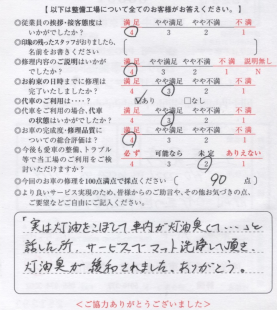 【以下は整備工場について全てのお客様がお答えください。】
◎従業員の挨拶・接客態度は 満足 やや満足 やや不満 不満
いかがでしたか? 4 3 2 1
◎印象の残ったスタッフがおりましたら、
名前をお書きください
◎修理内容のご説明はいかが 満足 やや満足 やや不満 不満 説明無し
でしたか? 4 3 2 1 N
◎お約束の日時までに修理は 満足 やや満足 やや不満 不満
完了いたしましたか? 4 3 2 1
◎代車のご利用は・・・? ☑あり □なし
◎代車をご利用の場合、代車 満足 やや満足 やや不満 不満
の状態はいかがでしたか? 4 3 2 1
◎お車の完成度・修理品質に 満足 やや満足 やや不満 不満
ついての総合評価は? 4 3 2 1
◎今後も愛車の整備、トラブル 必ず 可能なら 未定 ありえない
等で当工場のご利用をご検 4 3 2 1
討いただけますか?
◎今回のお車の修理を100点満点で採点ください( 90 点)
◎より良いサービス実現のため、皆様からのご助言や、その他お気づきの点、
ご要望などご自由にご記入ください。
「実は灯油をこぼして車内が灯油臭くて…」と
話した所、サービスでマット洗浄して頂き、
灯油臭が緩和されました。ありがとう。
＜ご協力ありがとうございました＞